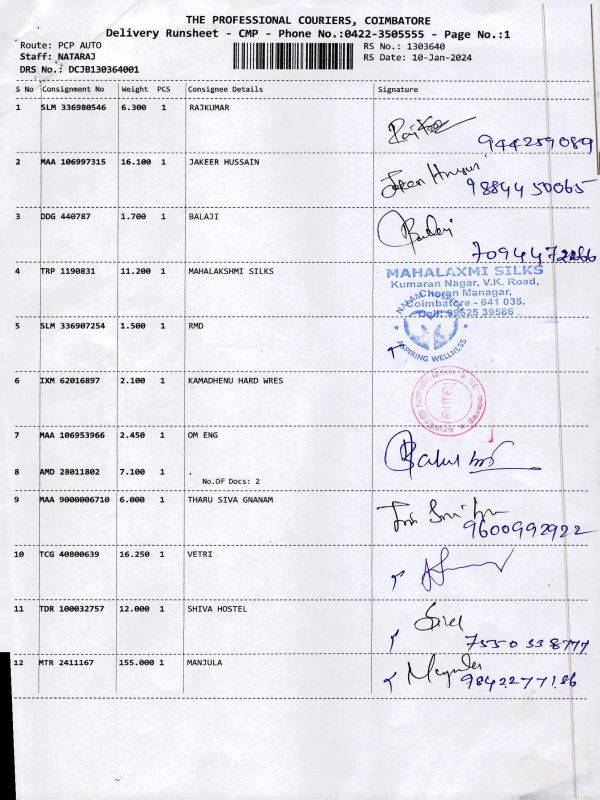 THE PROFESSIONAL COURIERS, COIMBATORE
Delivery Runsheet - CMP - Phone No.:0422-3505555 - Page No.:1
Route: PCP AUTO RS No.: 1303640
Staff: NATARAJ RS Date: 10-Jan-2024
DRS No.: DCJB130364001
S No Consignment No Weight PCS Consignee Details Signature
1 SLM 336980546 6.300 1 RAJKUMAR
944259089
2 MAA 106997315 16.100 1 JAKEER HUSSAIN
9884450065
3 DDG 440787 1.700 1 BALAJI
Balaji
4 TRP 1190831 11.200 1 MAHALAKSHMI SILKS
MAHALAXMI SILKS
Kumaran Nagar, V.K. Road,
Cheran Managar,
Coimbatore - 641 035.
Cell: 99525 39586
5 SLM 336907254 1.500 1 RMD
ASPIRING WELLNESS
6 IXM 62016897 2.100 1 KAMADHENU HARD WRES
7 MAA 106953966 2.450 1 OM ENG
8 AMD 28011802 7.100 1 .
No.Of Docs: 2
9 MAA 9000006710 6.000 1 THARU SIVA GNANAM
9600992922
10 TCG 40800639 16.250 1 VETRI
11 TDR 100032757 12.000 1 SHIVA HOSTEL
7550338777
12 MTR 2411167 155.000 1 MANJULA
9842277186